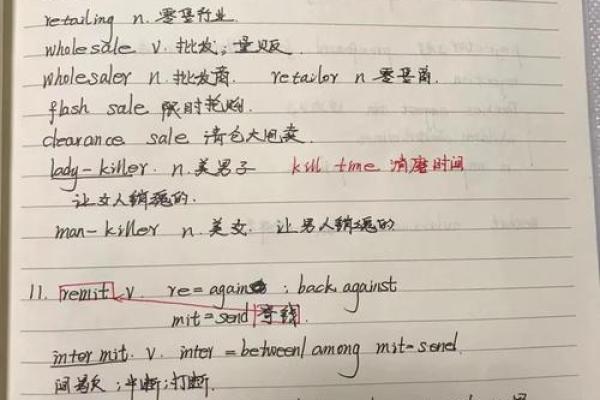 retailing n. 零售行业
wholesale v. 批发；量贩
wholesaler n. 批发商. retailor n 零售商.
flash sale 限时抢购.
clearance sale 清仓大甩卖
lady-killer. n. 美男子 kill time 消磨时间
让女人销魂的.
man-killer n. 美女. 让男人销魂的
11. remit v. re = again : back, against
mit = send 寄钱.
intermit. v. inter = between/among mit = send.
间歇；中断；打断.